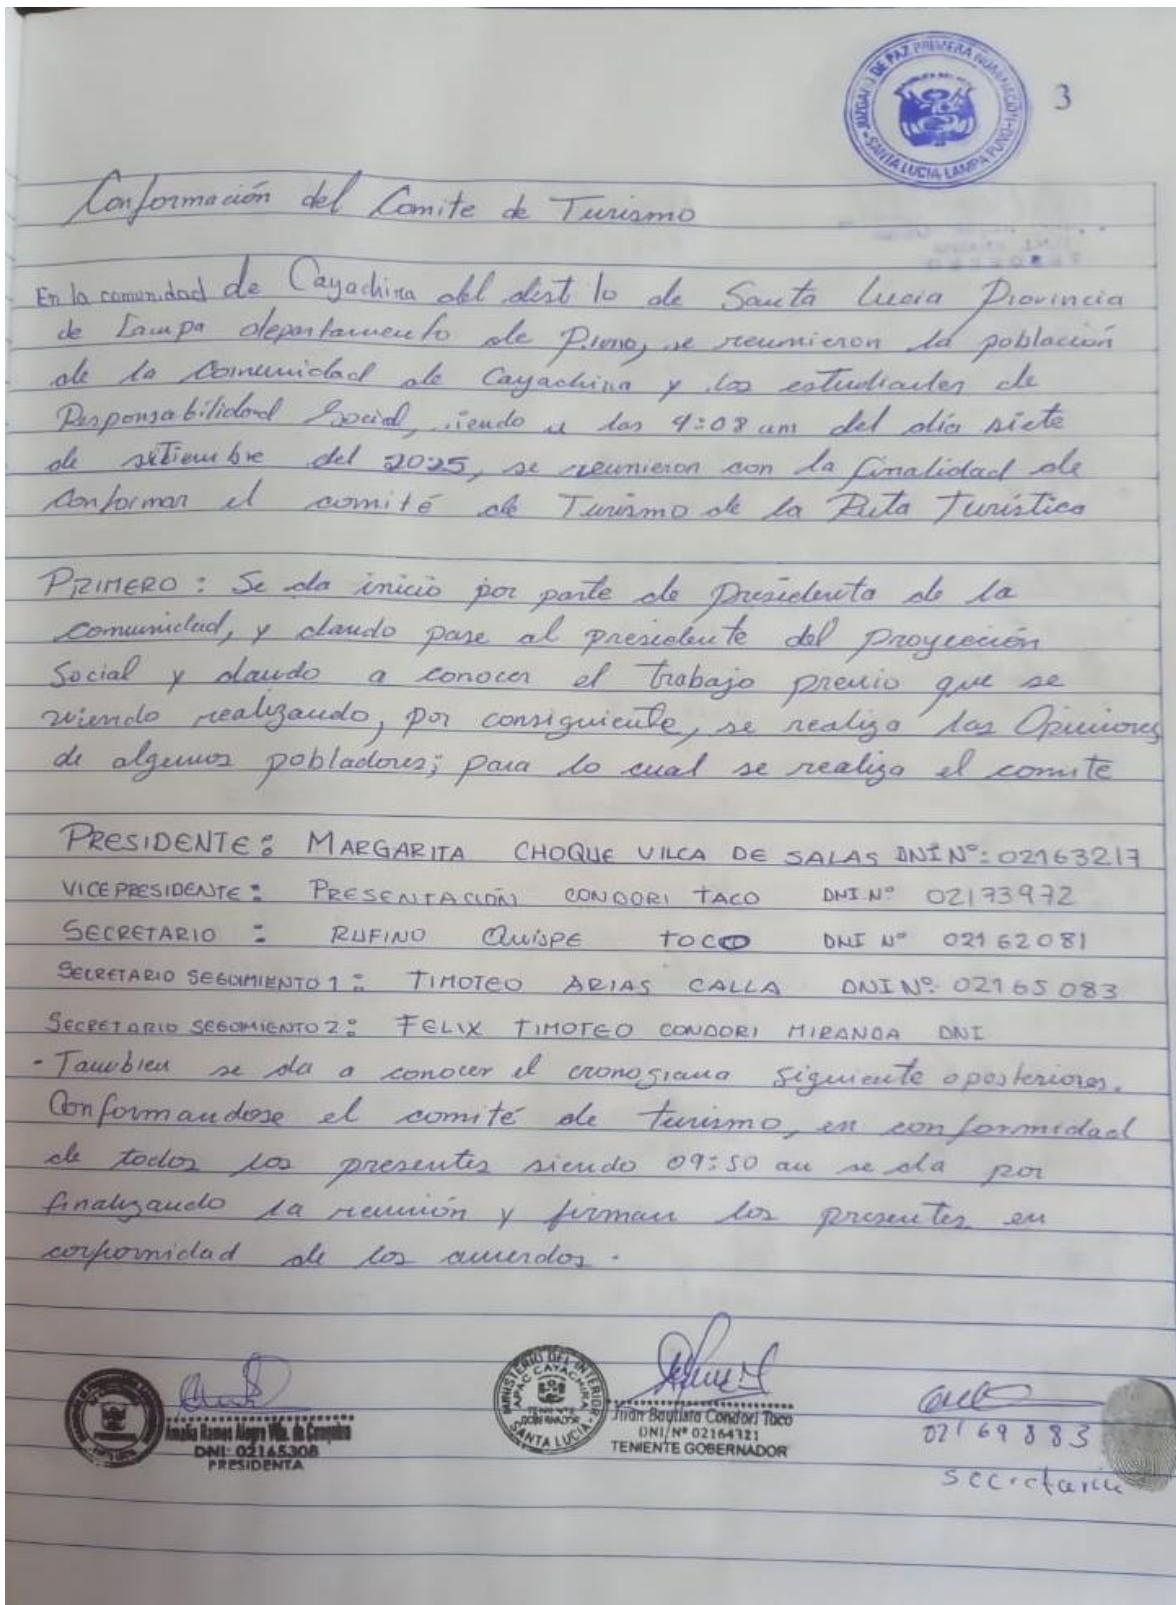 JUZGADO DE PAZ PRIMERA NOMINACIÓN
SANTA LUCIA LAMPA PUNO
3
Conformación del Comite de Turismo
En la comunidad de Cayachira del dist to de Santa Lucia Provincia
de Lampa departamento de Puno, se reunieron la población
de la Comunidad de Cayachira y los estudiantes de
Responsabilidad Social, siendo a las 9:08 am del día siete
de setiembre del 2025, se reunieron con la finalidad de
Conformar el comité de Turismo de la Ruta Turística
PRIMERO: Se da inicio por parte de Presidenta de la
comunidad, y dando pase al presidente del Proyección
Social y dando a conocer el trabajo previo que se
viendo realizando, por consiguiente, se realiza las Opiniones
de algunos pobladores; para lo cual se realiza el comité
PRESIDENTE: MARGARITA CHOQUE VILCA DE SALAS DNI Nº: 02163217
VICEPRESIDENTE: PRESENTACIÓN CONDORI TACO DNI Nº 02173972
SECRETARIO : RUFINO QUISPE TOCCO DNI Nº 02162081
SECRETARIO SEGUIMIENTO 1: TIMOTEO ARIAS CALLA DNI Nº: 02165083
SECRETARIO SEGOMIENTO 2: FELIX TIMOTEO CONDORI MIRANDA DNI
- Tambien se da a conocer el cronograma siguiente oposteriores.
Conformandose el comité de turismo, en conformidad
de todos los presentes siendo 09:50 am se da por
finalizando la reunión y firman los presentes en
conformidad de los acuerdos.
Amalia Ramos Alegre Vda. de
DNI: 02165308
PRESIDENTA
MINISTERIO DEL INTERIOR
CAYACHIRA
TENIENTE
GOBERNADOR
SANTA LUCIA
Juan Bautista Condori Taco
DNI/Nº 02164321
TENIENTE GOBERNADOR
02169883
secretaria